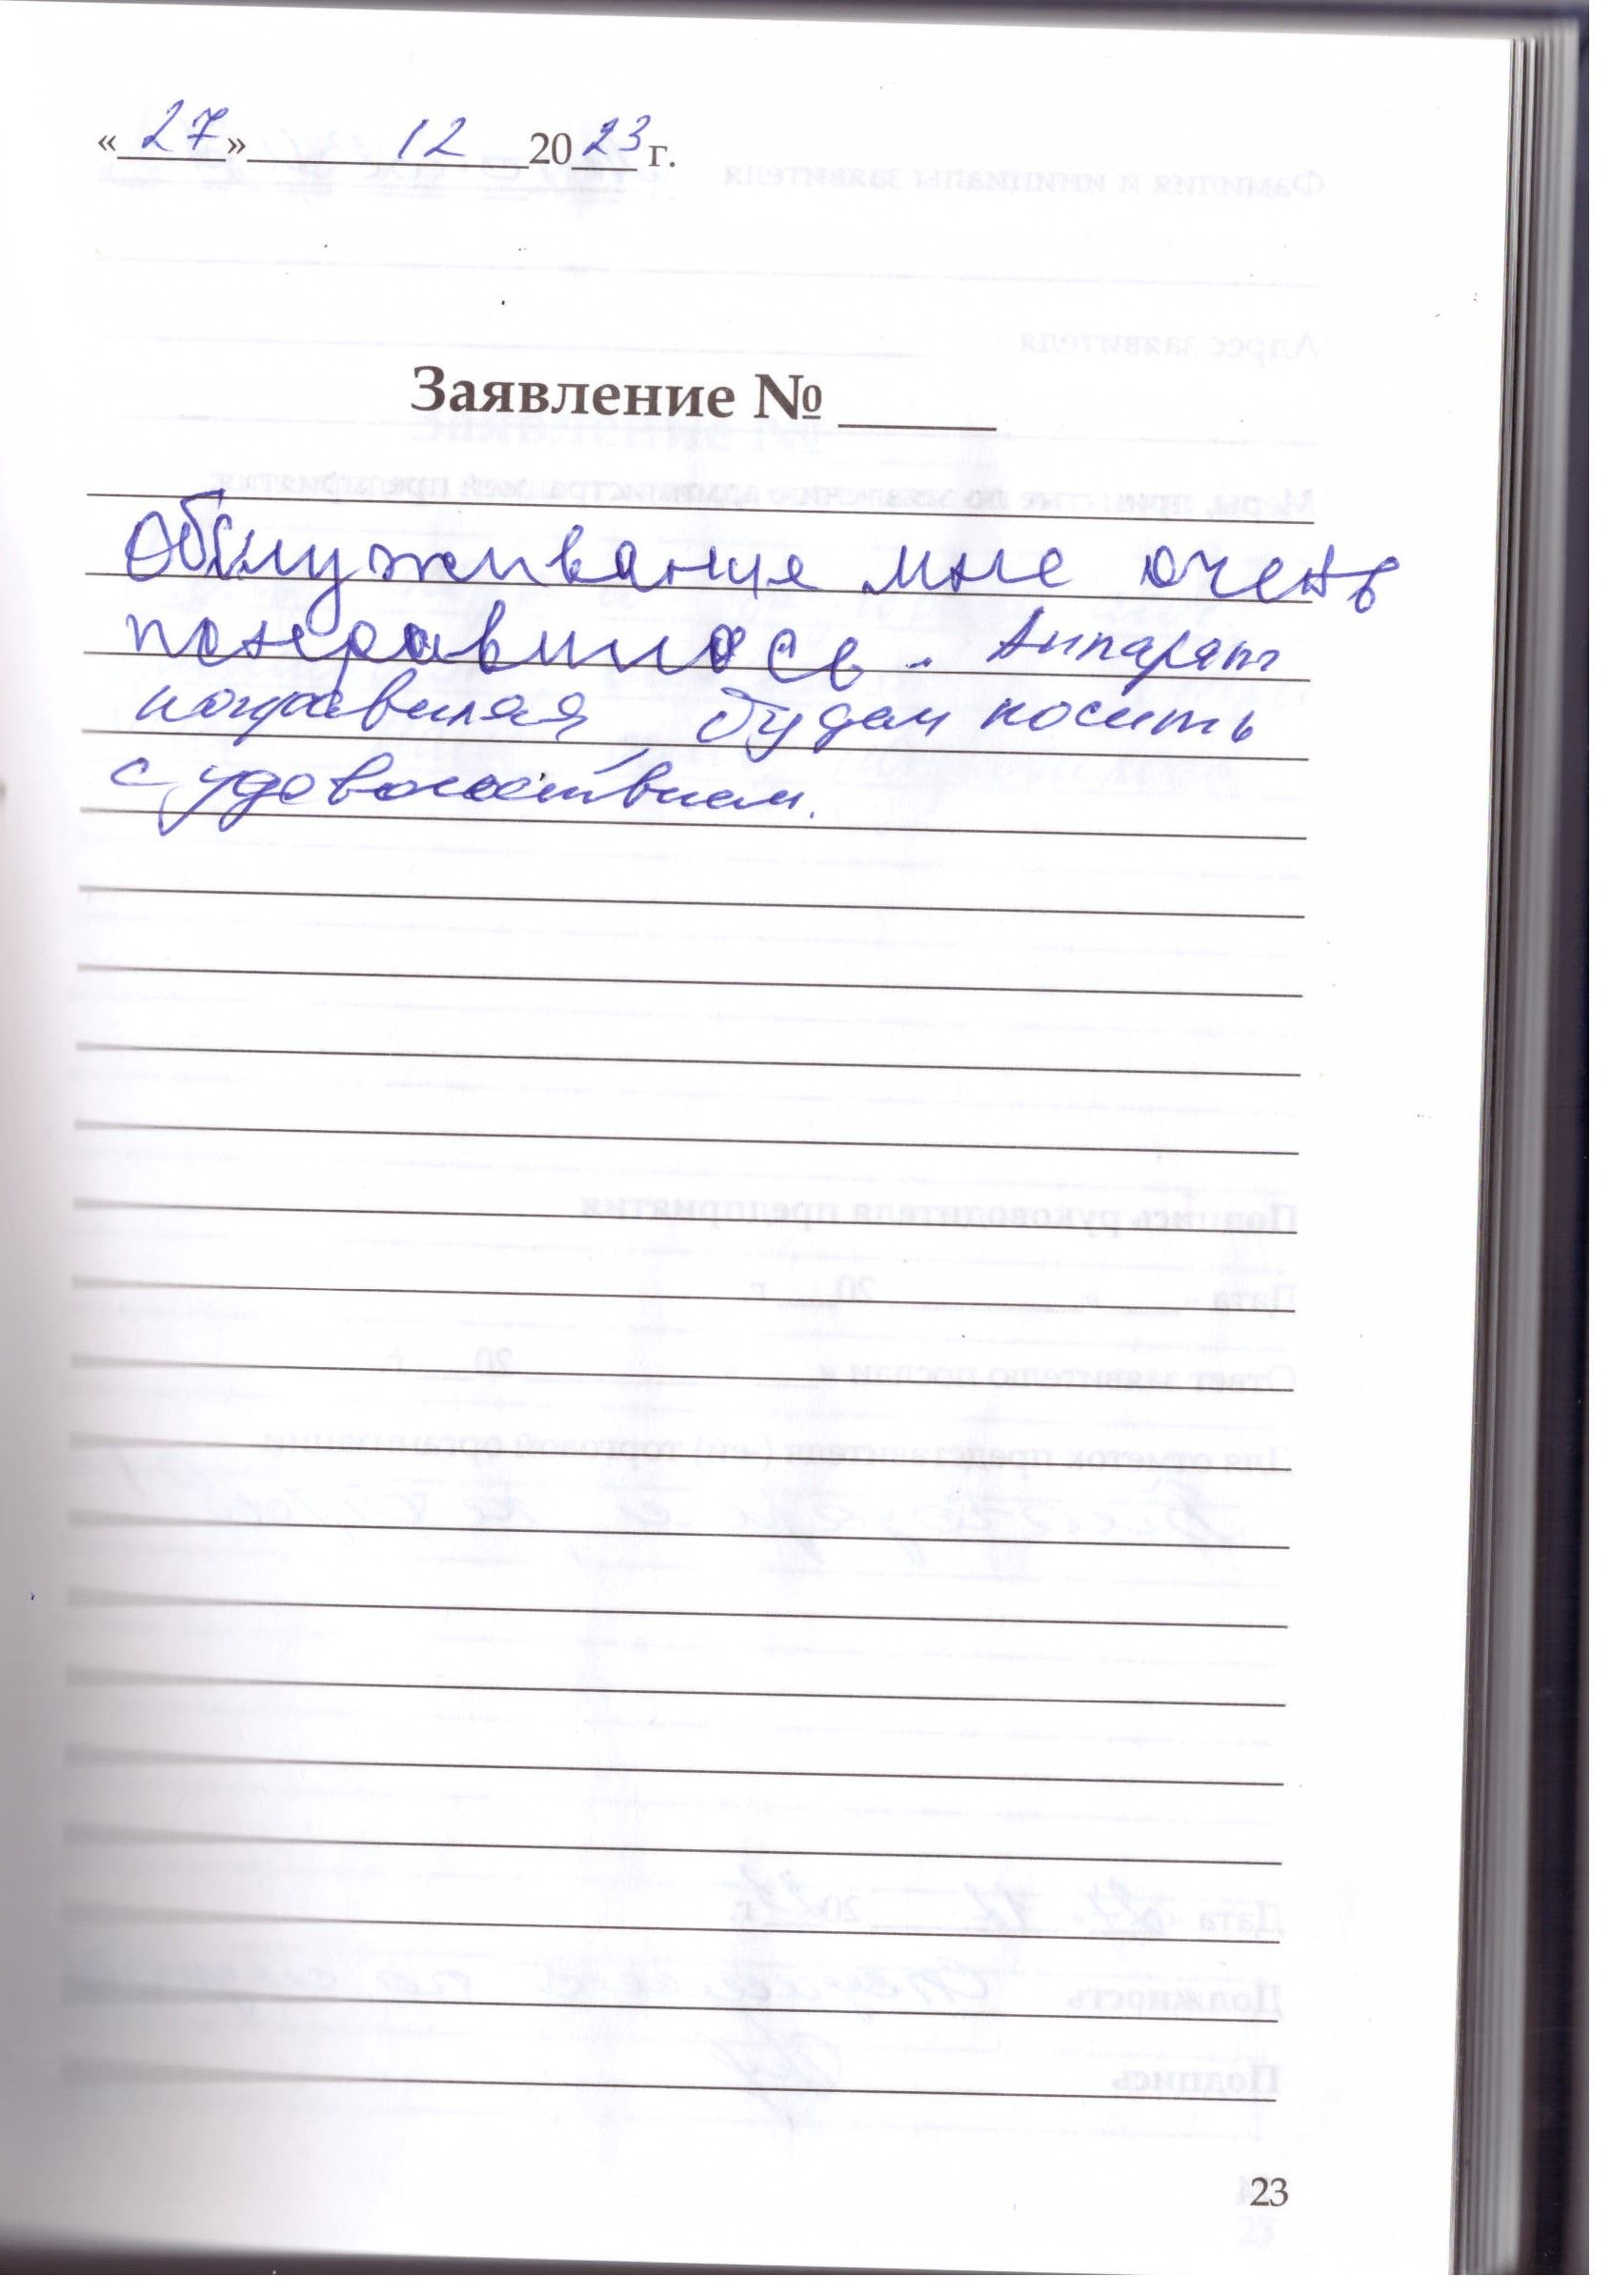 «27» 12 2023 г.
Заявление № ____
Обслуживание мне очень
понравилось. Аппарат
понравился, будем носить
с удовольствием.
23